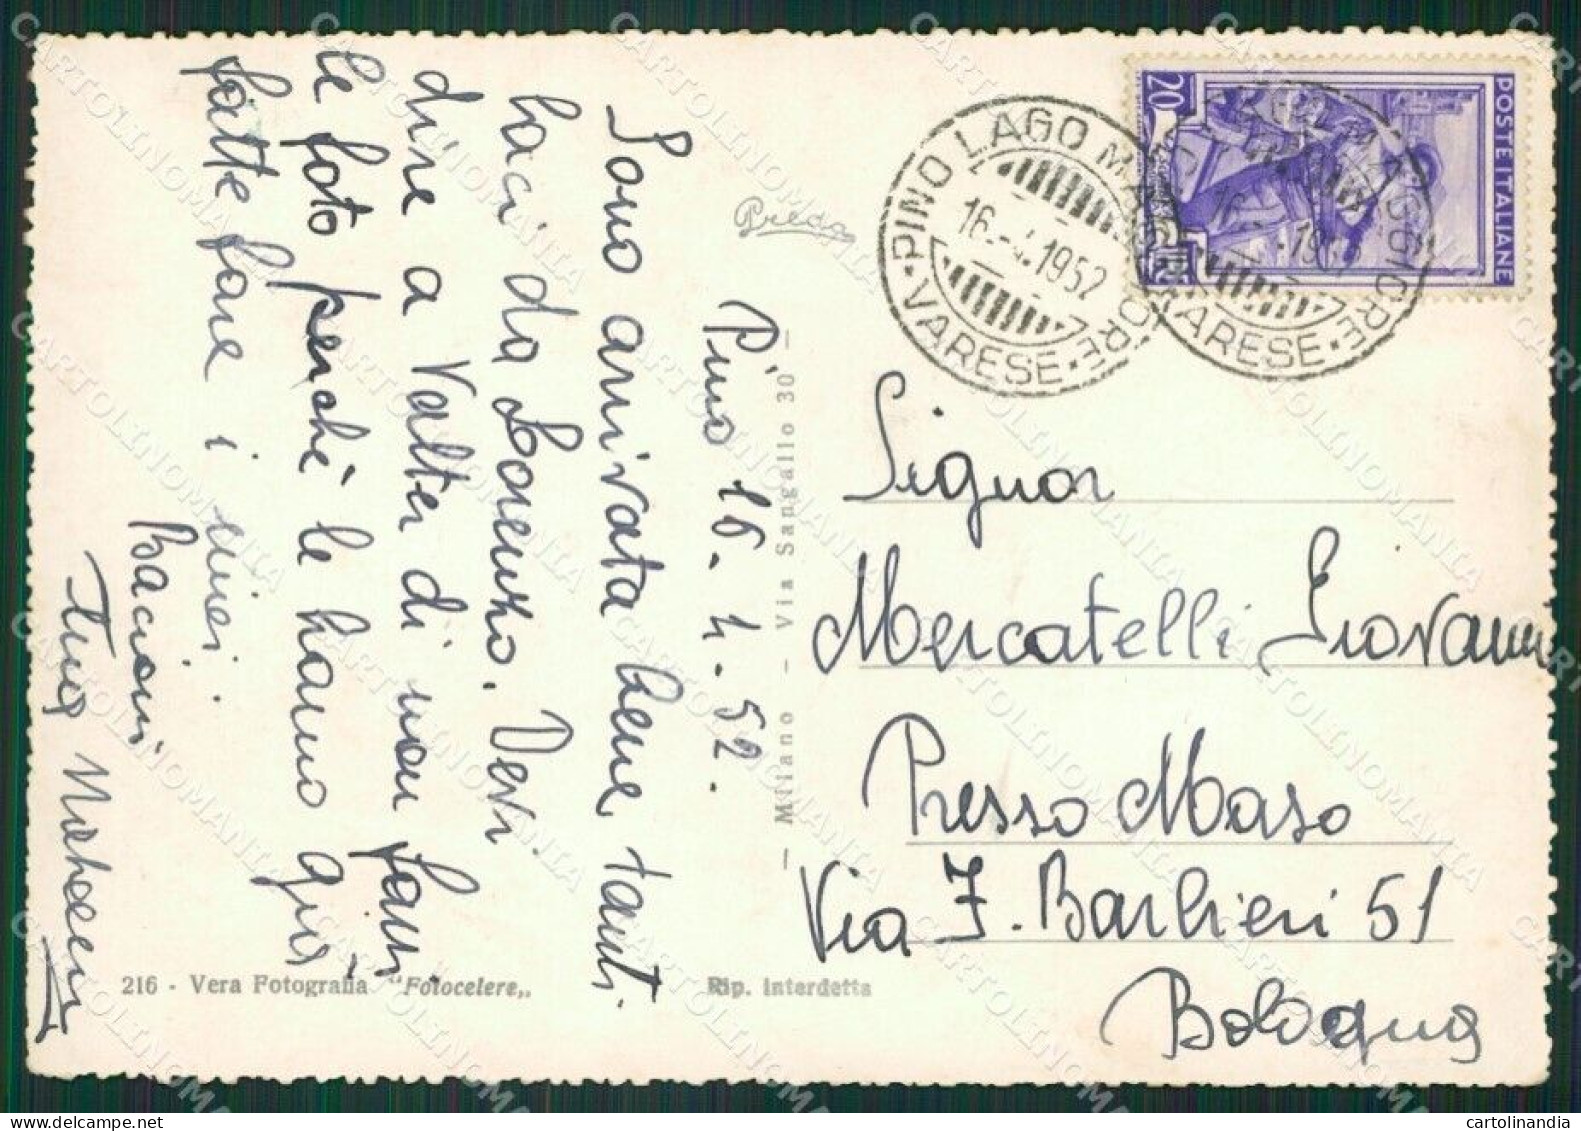 Pino 16.4.52.
Sono arrivata bene, tanti
baci da Lorenzo. Devi
dire a Valter di non farsi
le foto perchè le hanno già
fatte fare i miei.
Bacioni
POSTE ITALIANE
20
PINO LAGO MAGGIORE
16.4.1952
VARESE
PINO LAGO MAGGIORE
VARESE
Preda
Signor
Mercatelli Giovanni
Presso Maso
Via F. Barbieri 51
Bologna
— Milano — Via Sangallo 30 —
216 - Vera Fotografia "Fotocelere„
Rip. interdetta
CARTOLINOMANIA
cartolinandia